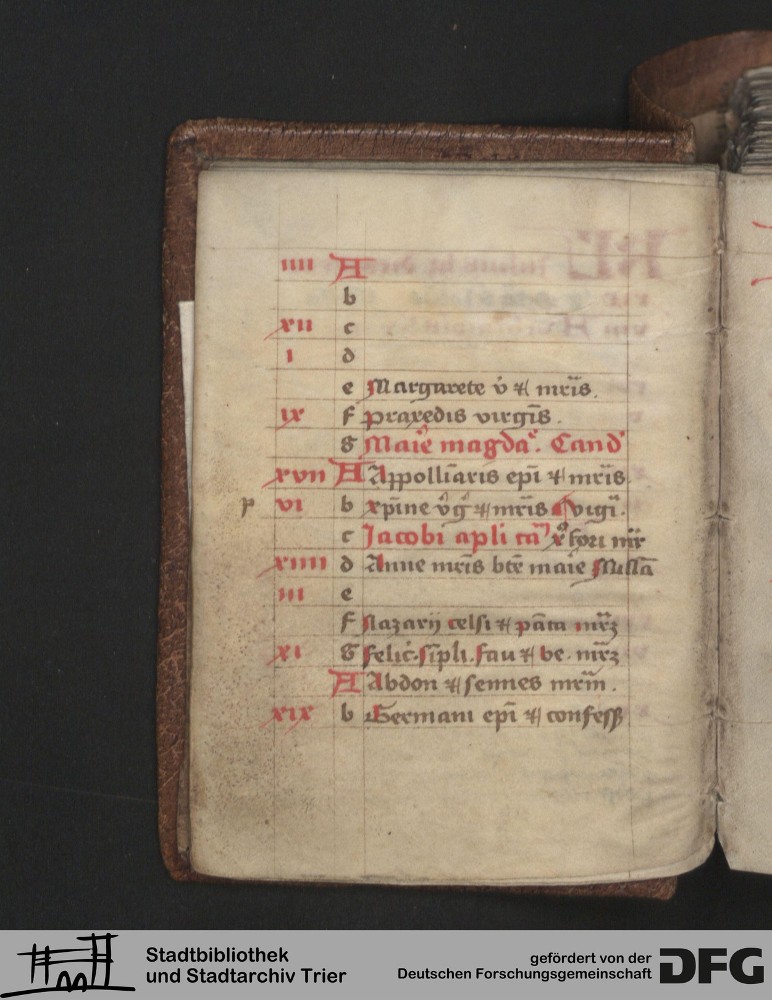 iiii A
b
xii c
i d
e Margarete v̓ ⁊ mr̄is.
ix f praxedis virgīs.
g Maīe magdaͤ. Cand̓
xvii A Appollīaris ep̄i ⁊ mr̄is.
p vi b xp̄ine v̓g̓ ⁊ mr̄is vigī.
c Jacobi apli xp̄ofori mr̄
xiiii d Anne mr̄is bt̄e maīe Missā
iii e
f Nazarij celsi ⁊ pāta mr̄ꝫ
xi g felic̓. sīpli. fau ⁊ be. mr̄ꝫ
A Abdon ⁊ sennes mr̄m.
xix b Germani ep̄i ⁊ confess
Stadtbibliothek
und Stadtarchiv Trier
gefördert von der
Deutschen Forschungsgemeinschaft
DFG